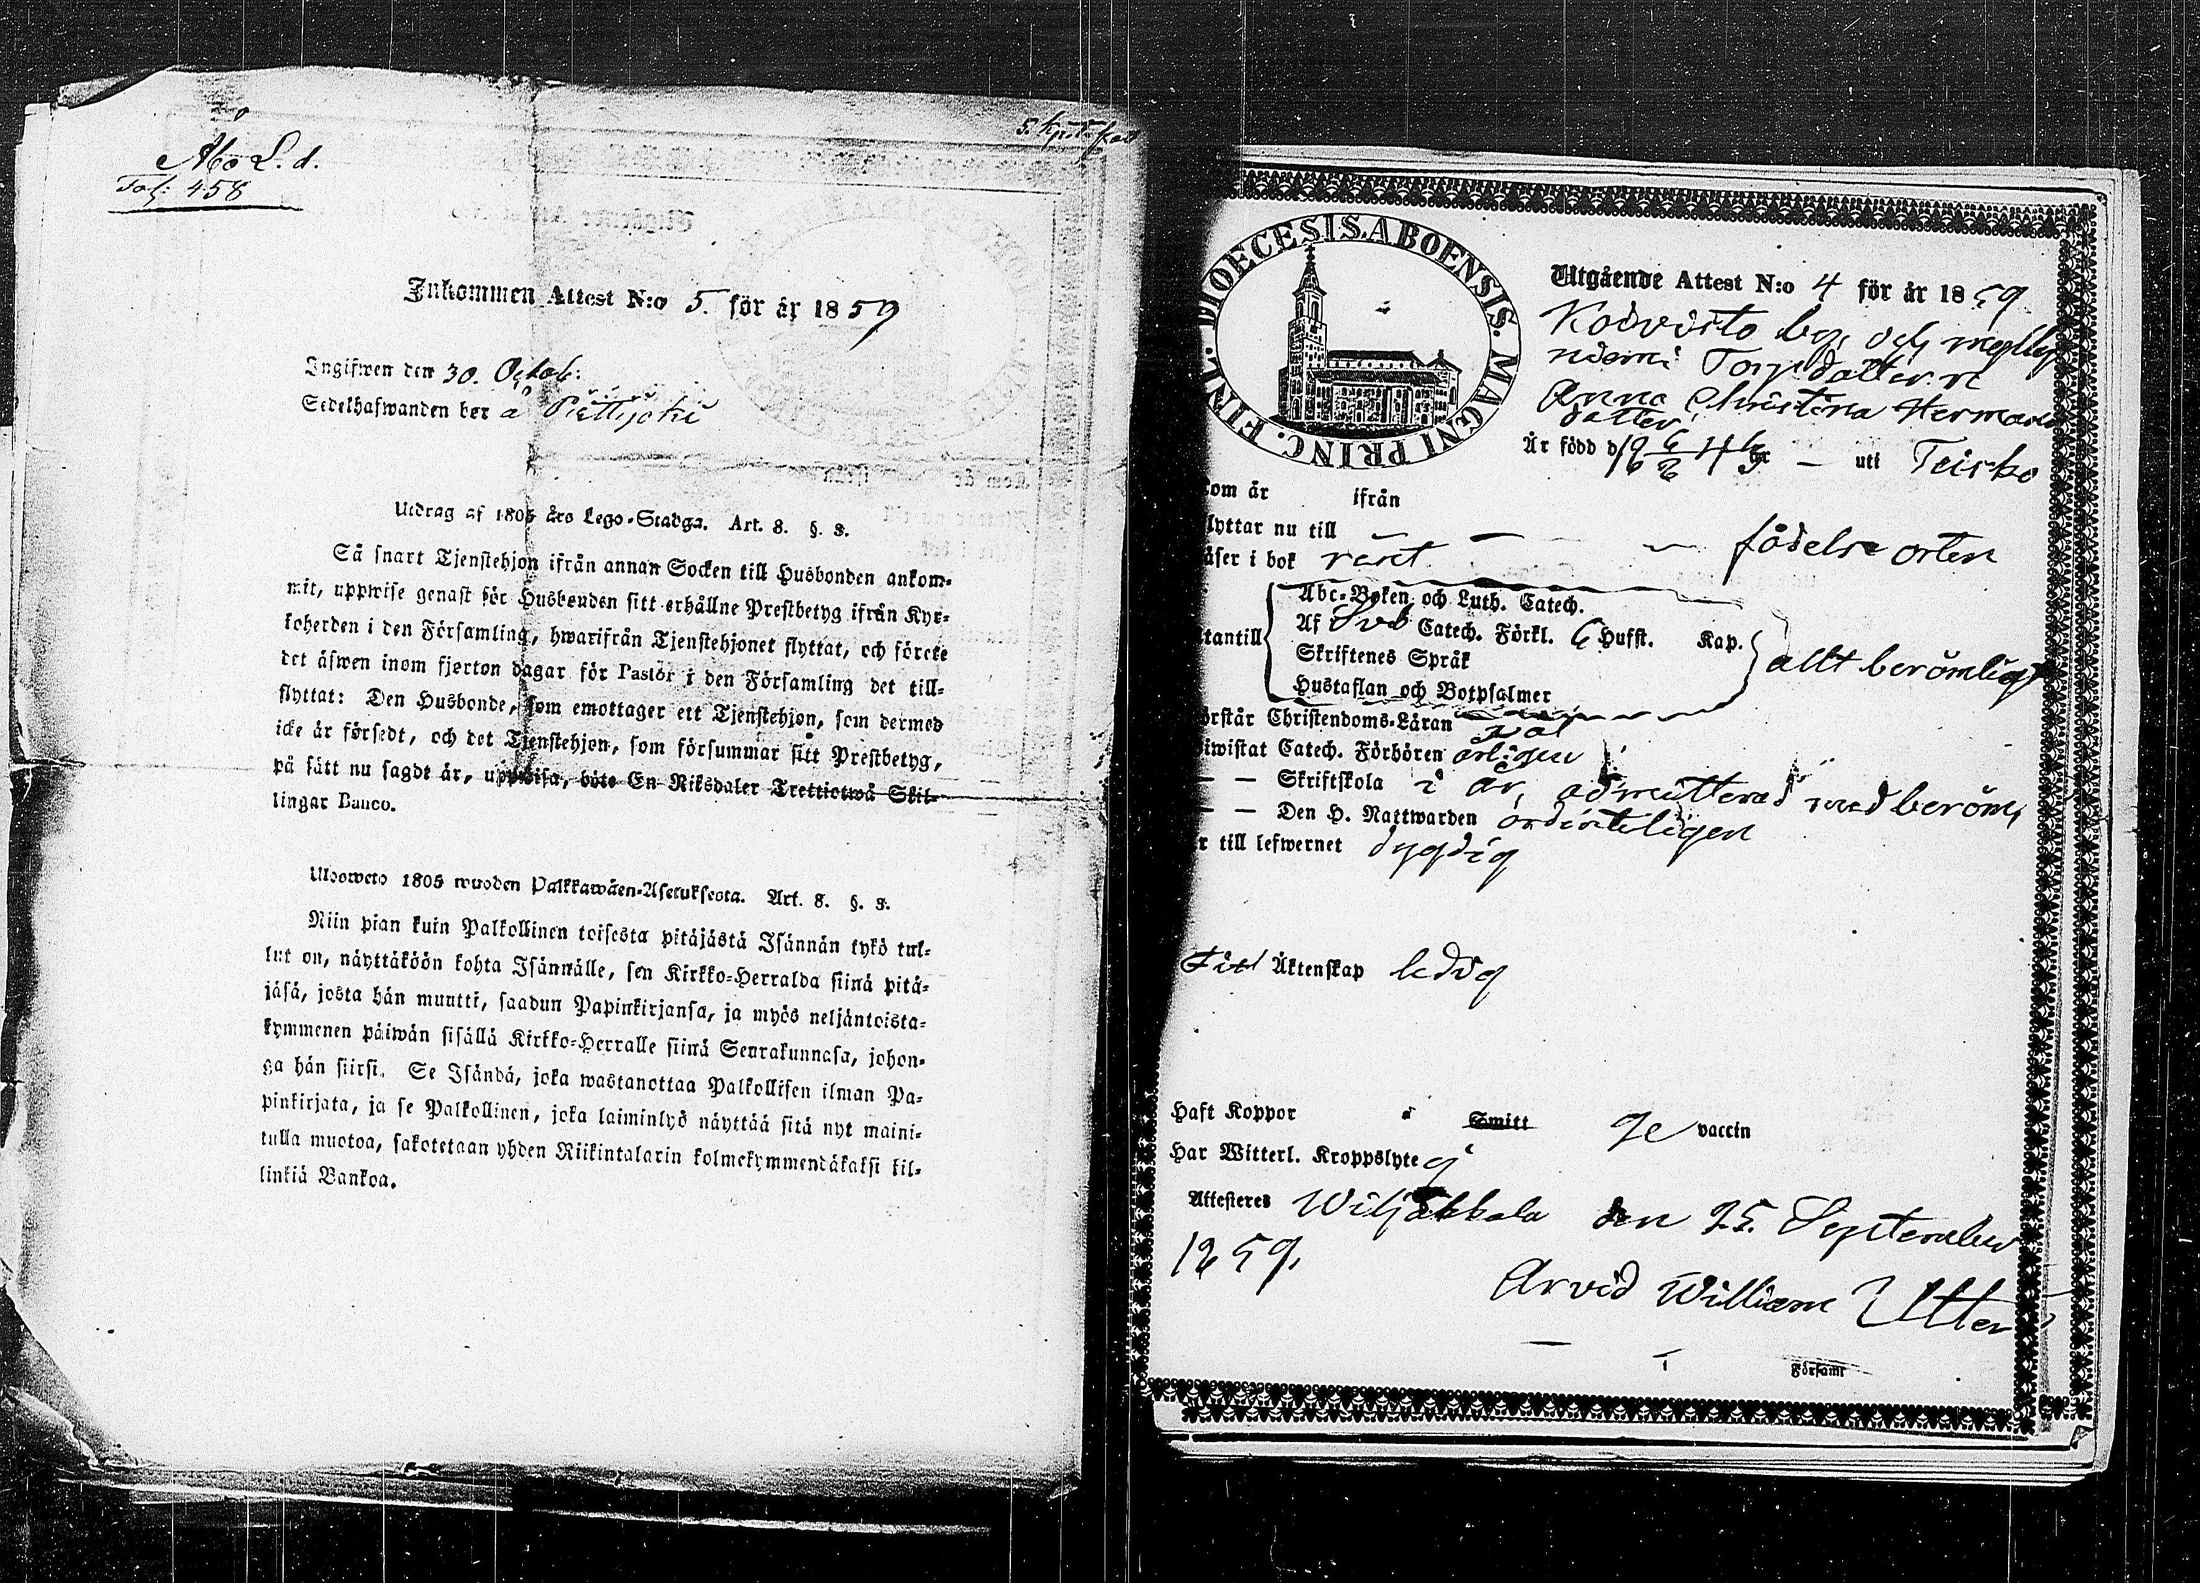 Åbo L. d.
Tof: 458
Inkommen Attest N:o 5. för år 1859
Ingifwen den 30. Octob:
Sedelhafwanden ber å
Utdrag af 1805 års Lego-Stadga. Art. 8. §. 3.
Så snart Tjenstehjon ifrån annan Socken till Husbonden ankom-
mit, uppwise genast för Husbonden sitt erhållne Prestbetyg ifrån Kyr-
koherden i den Församling, hwarifrån Tjenstehjonet flyttat, och förete
det äfwen inom fjorton dagar för Pastor i den Församling det till-
flyttat: Den Husbonde, som emottager ett Tjenstehjon, som dermed
icke är försedt, och det Tjenstehjon, som försummar sitt Prestbetyg,
på sätt nu sagdt är, uppwisa, böte En Riksdaler Trettiotwå Skil-
lingar Banco.
Ulosweto 1805 wuoden Palkkawäen-Asetuksesta. Art. 8. §. 3.
Niin pian kuin Palkollinen toisesta pitäjästä Isännän tykö tul-
lut on, näyttäköön kohta Isännälle, sen Kirkko-Herralda siinä pitä-
jäsä, josta hän muutti, saadun Papinkirjansa, ja myös neljäntoista-
kymmenen päiwän sisällä Kirkko-Herralle siinä Seurakunnasa, johon-
ga hän siirsi. Se Isändä, joka wastanottaa Palkollisen ilman Pa-
pinkirjata, ja se Palkollinen, joka laiminlyö näyttää sitä nyt maini-
tulla muotoa, sakotetaan yhden Riikintalarin kolmekymmendäkaksi kil-
linkiä Bankoa.
DIOECESIS. ABOENSIS. MAGNI PRINC. FINL.
Utgående Attest N:o 4 för år 1859
Koivisto by, och
Torpdotter
Anna Christina Hermans
dotter
Är född d uti Teisko
kom år ifrån
flyttar nu till födelse orten
äser i bok rent
Abc-Boken och Luth. Catech.
Af Sveb Catech. Förkl. 6 Hufst. Kap.
Utantill
Skriftenes Språk
Hustaflan och Botpsalmer
allt berömligt
örstår Christendoms-Läran
iwistat Catech. Förhören årligen
— — Skriftskola i år, admitterad med beröm,
— — Den H. Nattwarden ordenteligen
r till lefwernet dygdig
Till Äktenskap ledig
Haft Koppor Smitt vaccin
Har Witterl. Kroppslyte ej
Attesteres Wiljakkala den 25. September
1859.
Arvid William Utter
Församl